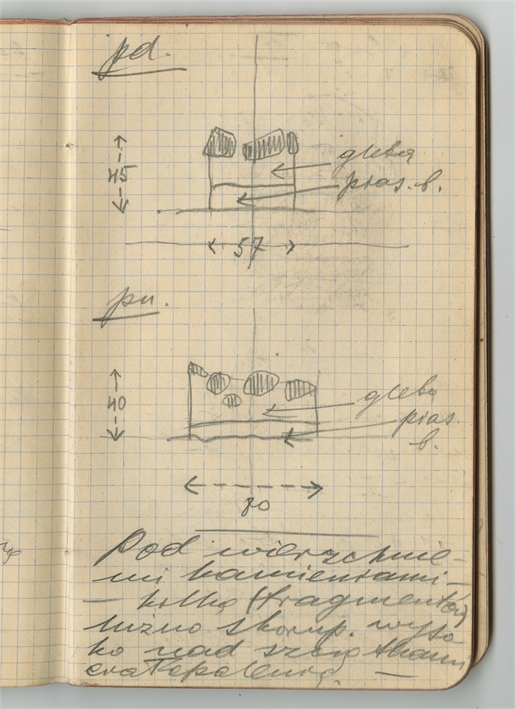 pd.
45
gleba
pias. b.
57
pn.
40
gleba
pias.
b.
70
Pod wierzchnie-
mi kamieniami –
– kilka (fragmentów)
luźno skorup. wyso
ko nad szcią